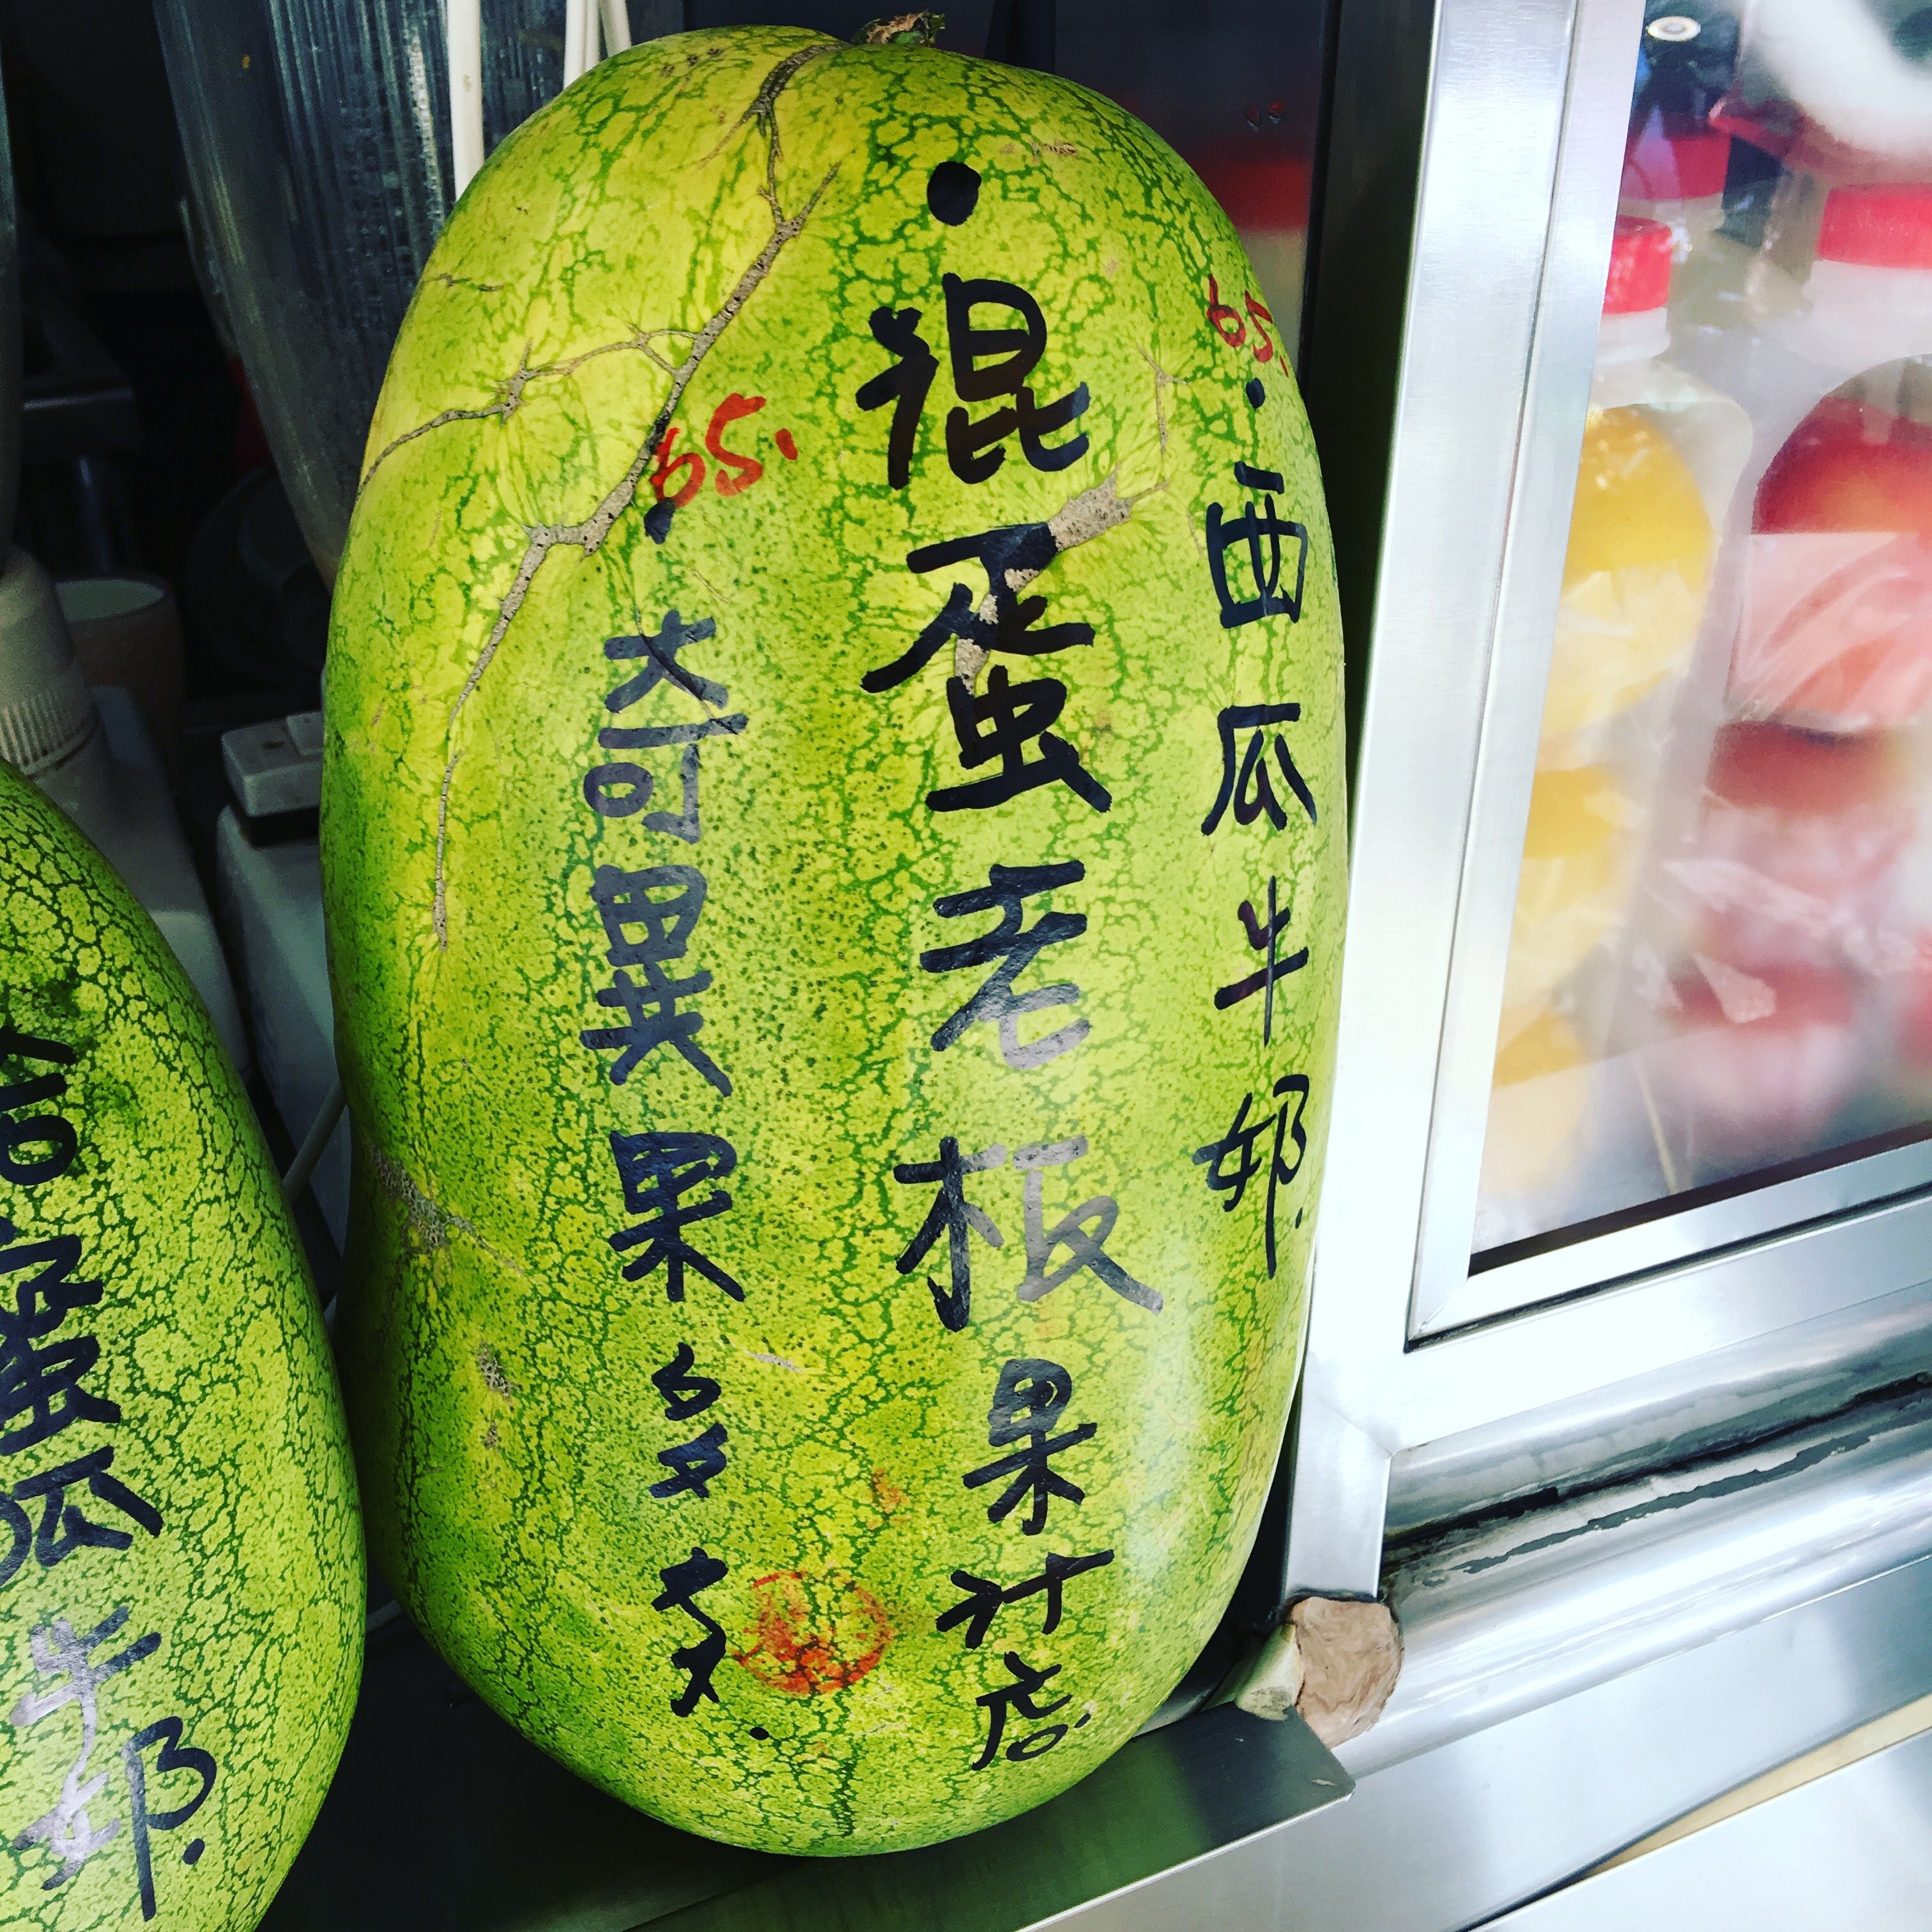 65.
·西瓜牛奶.
·混蛋老板果汁店.
65.
·奇異果多多.
哈蜜瓜牛奶.